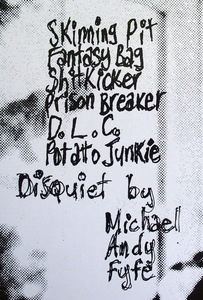 Skinning Pit
Fantasy Bag
ShitKicker
Prison Breaker
D. L. C.
Potatto Junkie
Disquiet by
Michael
Andy
Fyfe